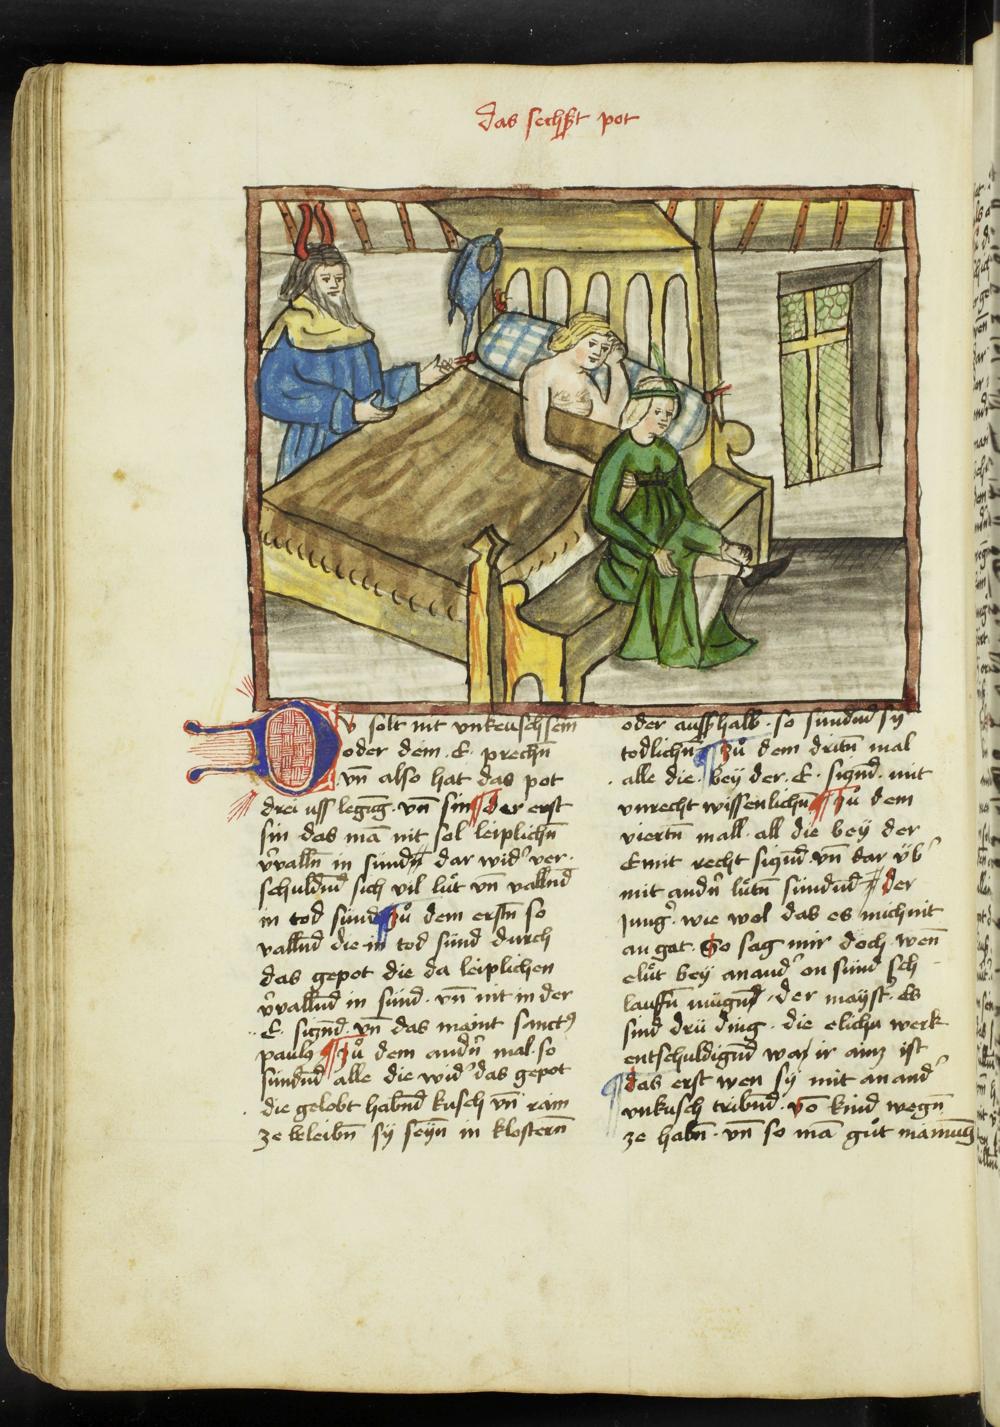 das sechst pot
Du solt nit vnkeuschsein
oder dem · E · prechn̄
vn̄ also hat das pot
drei uss legūg · vn̄ sin ¶ der erst
sin das mā nit sol leiplichn̄
v̾valln̄ in sündn̄ dar wid̾ ver·
schuldn̄d sich vil lüt vn̄ valln̄d
in tod sünd ¶ zů dem erstn̄ so
valln̄d die in tod sünd durch
das gepot die da leiplichen
v̾valln̄d in sünd · vn̄ nit in der
· E · signd · vn̄ das maint sanct̾
paul9 ¶ zů dem andn̾ mal · so
sündn̄d alle die wid̾ das gepot
die gelobt habn̄d kusch vn̄ rain
ze beleibn̄ sy seyn̄ in klostern̄
oder ausshalb · so sündn̄d sy
todlichn̄ ¶ zů dem dritn̄ mal
· alle die · bey der · E · signd · mit
vnrecht wissenlichn̄ ¶ zů dem
viertn̄ mall · all die bey der
E mit recht signd · vn̄ dar üb̾
mit andn̾ lütn̄ sündn̄d der
Jung̾ · wie wol das es mich nit
an gat · So sag mir doch · wen̄
elüt bey anand̾ on sünd sch
lauffn̄ mügn̄d · der mayst̾ · Es
sind drü ding · die elichn̄ werk
entschuldign̄d wan ir ainz ist
¶ das erst wen sy mit anand̾
vnkusch tribn̄d · vō kind wegn̄
ze habn̄ · vn̄ so mā gůt mainung